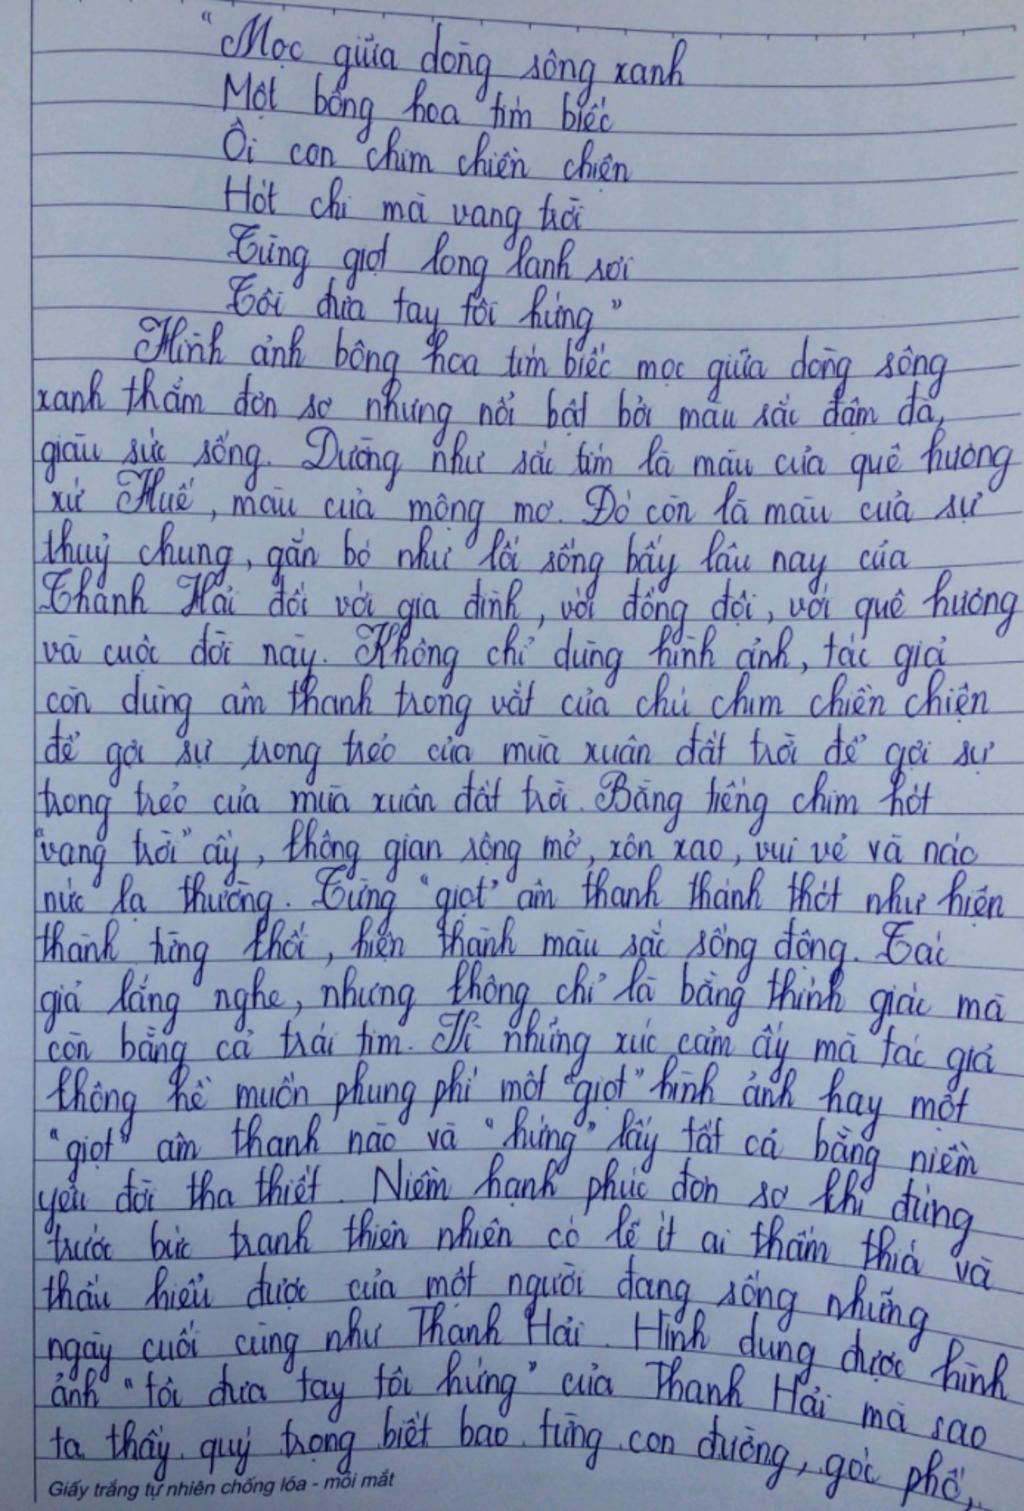 "Mọc giữa dòng sông xanh
Một bông hoa tím biếc
Ôi con chim chiền chiện
Hót chi mà vang trời
Từng giọt long lanh rơi
Tôi đưa tay tôi hứng"
Hình ảnh bông hoa tím biếc mọc giữa dòng sông
xanh thắm đơn sơ nhưng nổi bật bởi màu sắc đậm đà,
giàu sức sống. Dường như sắc tím là màu của quê hương
xứ Huế, màu của mộng mơ. Đó còn là màu của sự
thuỷ chung, gắn bó như lối sống bấy lâu nay của
Thanh Hải đối với gia đình, với đồng đội, với quê hương
và cuộc đời này. Không chỉ dùng hình ảnh, tác giả
còn dùng âm thanh trong vắt của chú chim chiền chiện
để gợi sự trong trẻo của mùa xuân đất trời để gợi sự
trong trẻo của mùa xuân đất trời. Bằng tiếng chim hót
"vang trời" ấy, không gian rộng mở, xôn xao, vui vẻ và náo
nức lạ thường. Từng "giọt" âm thanh thánh thót như hiện
thành từng khối, hiện thành màu sắc sống động. Tác
giả lắng nghe, nhưng không chỉ là bằng thính giác mà
còn bằng cả trái tim. Vì những xúc cảm ấy mà tác giả
không hề muốn phung phí một "giọt" hình ảnh hay một
"giọt" âm thanh nào và "hứng" lấy tất cả bằng niềm
yêu đời tha thiết. Niềm hạnh phúc đơn sơ khi đứng
trước bức tranh thiên nhiên có lẽ ít ai thấm thía và
thấu hiểu được của một người đang sống những
ngày cuối cùng như Thanh Hải. Hình dung được hình
ảnh "tôi đưa tay tôi hứng" của Thanh Hải mà sao
ta thấy quý trọng biết bao từng con đường, góc phố,
Giấy trắng tự nhiên chống lóa - mỏi mắt